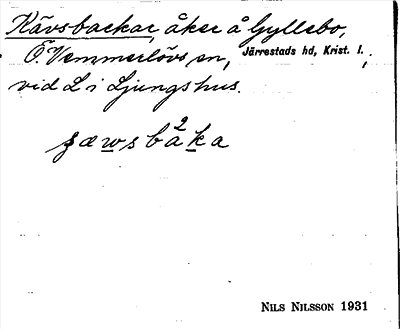 Kävsbackar, åker å Gyllebo,
Ö. Vemmerlövs sn, Järrestads hd, Krist. l.,
vid L i Ljungshus.
2
ʃæwsbåka
NILS NILSSON 1931